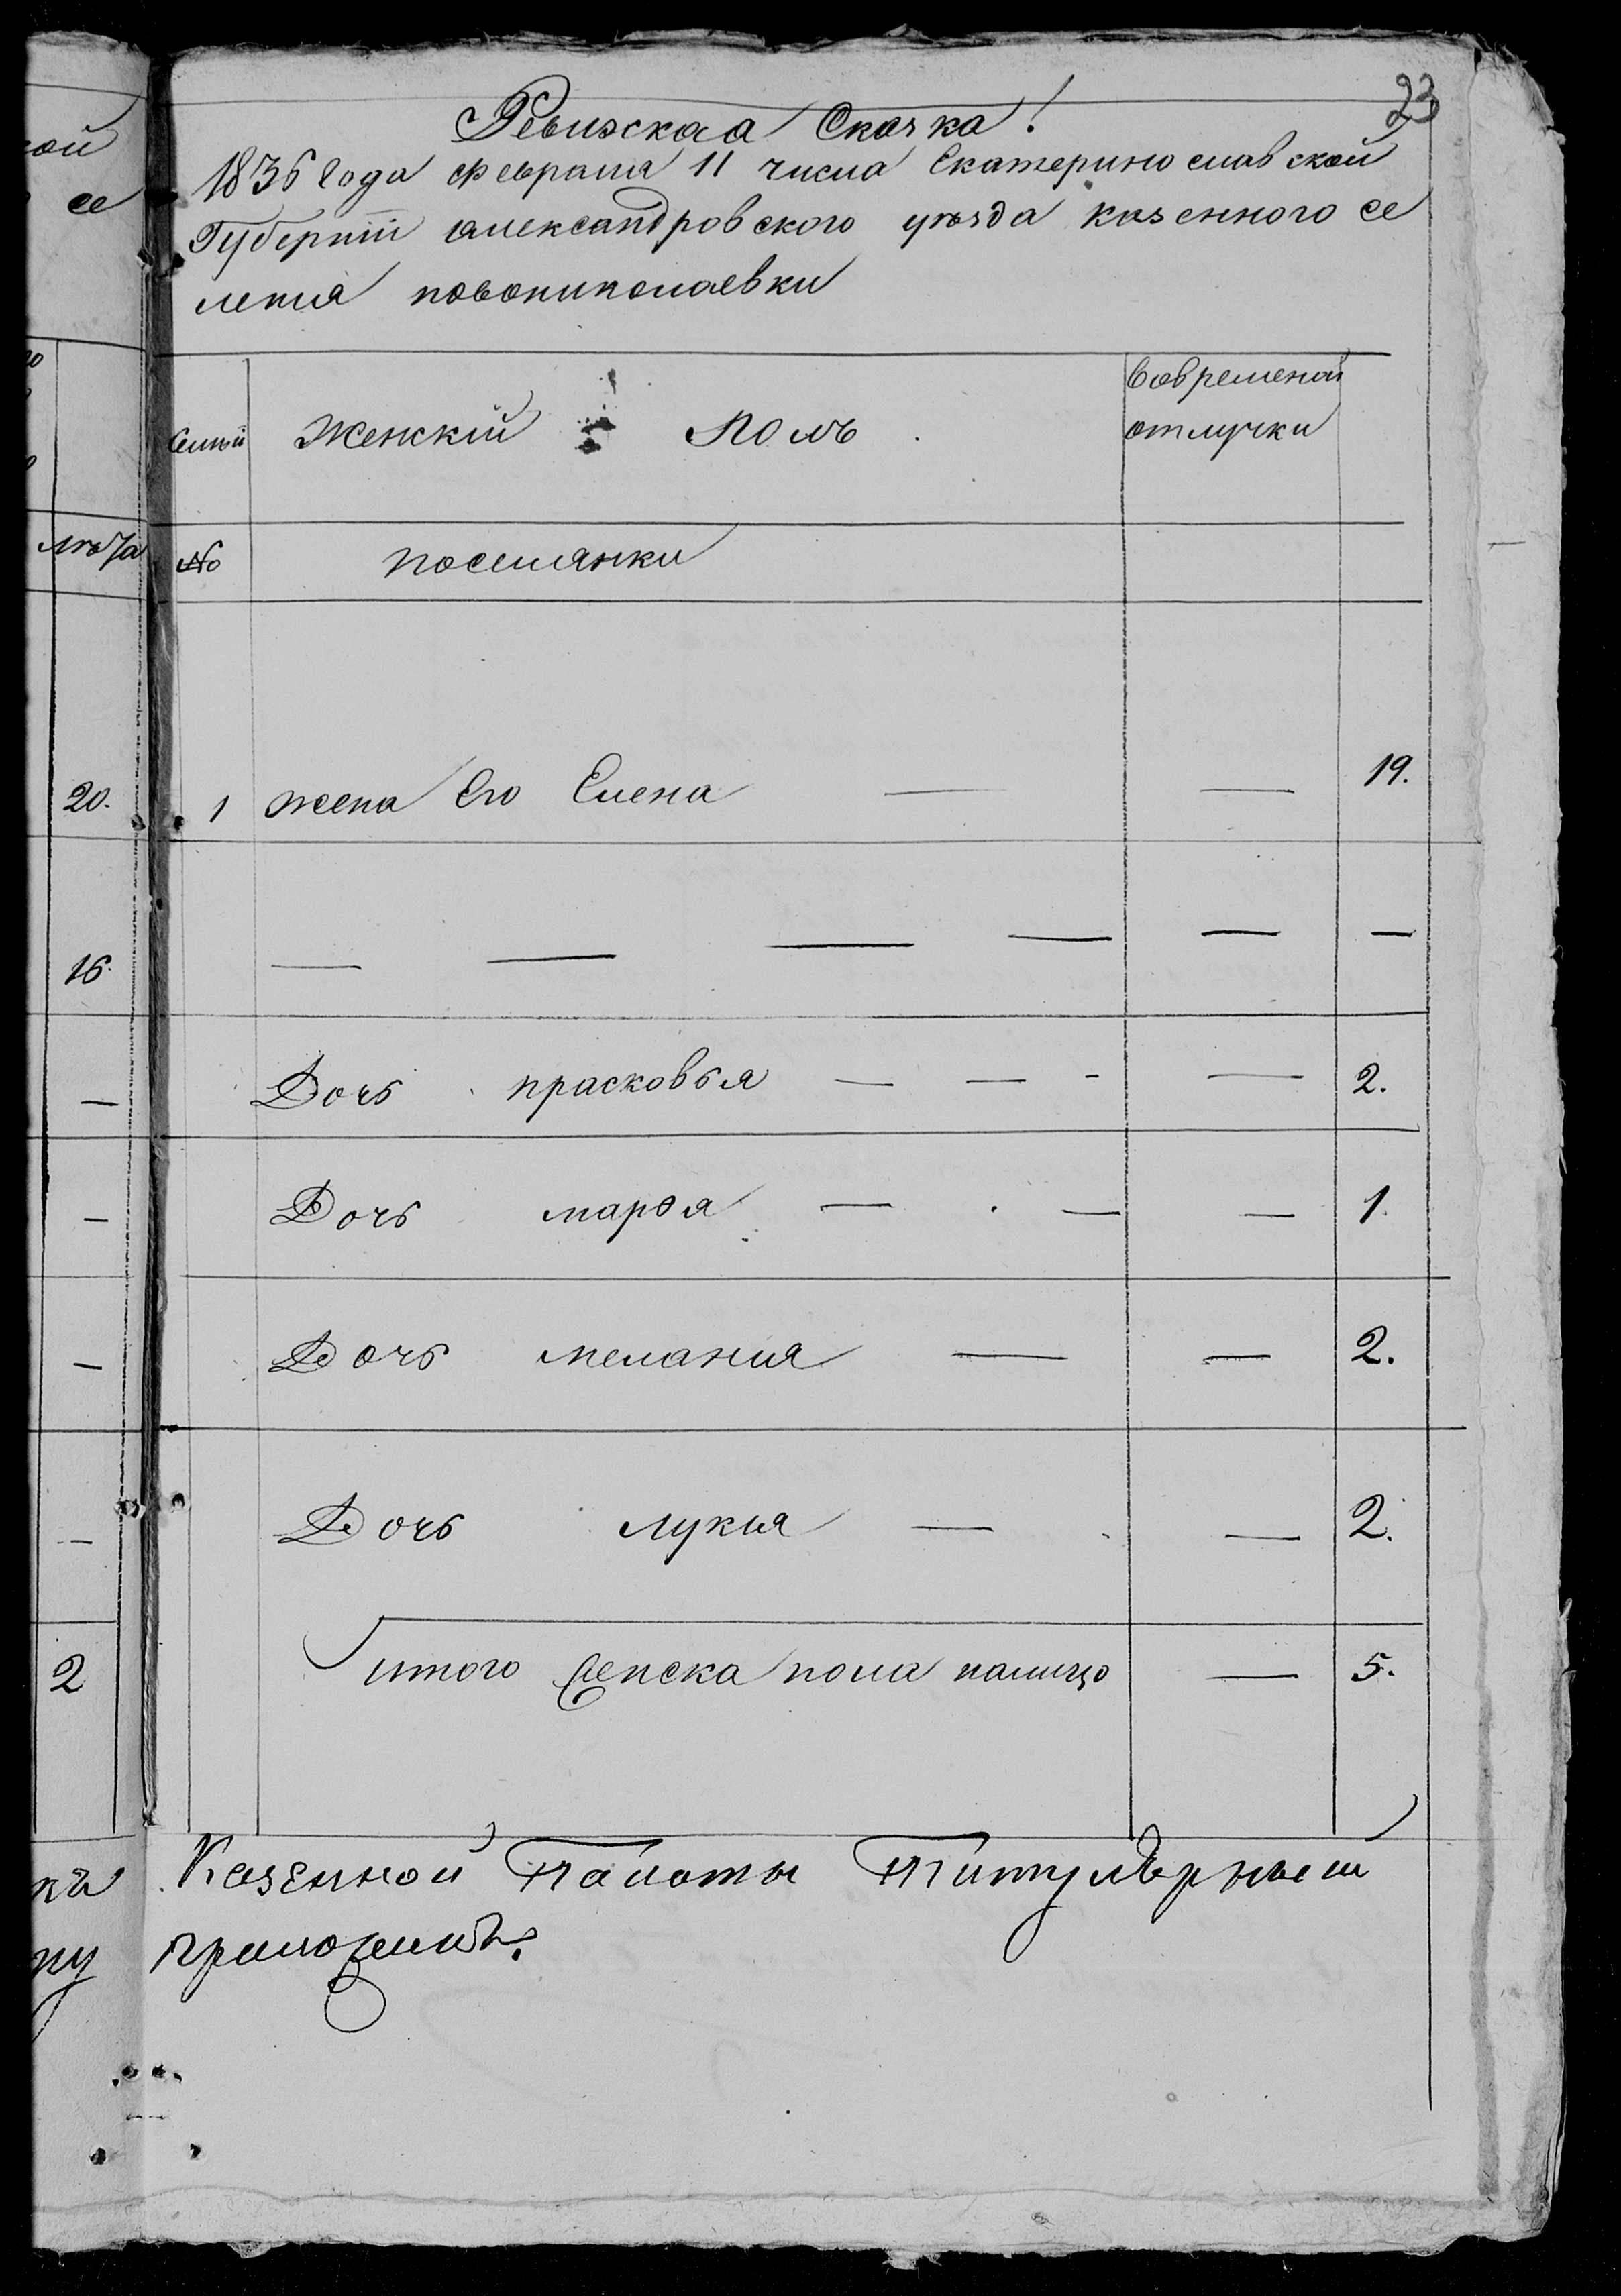 23
Ревижскаа Скаска!
1836 года февраля 11 числа Екатеринославской
Губернiи александровского уѣзда казенного се
ления новониколаевки
ой
се
семьи Женскiй Полъ вовременой
отлучки
лѣта № поселянки
20. 1 жена Его Елена — — 19.
16. — — — — — —
— Дочь прасковья — — - — 2.
— Дочь марѳя — — — 1.
— Дочь мелания — — 2.
— Дочь лукия — — 2.
2 итого женска пола налицо — 5.
Казенной Палаты Титулярныем
ну приложилъ.